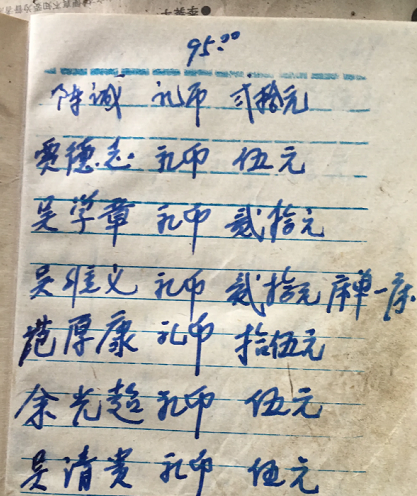 95.00
陈诚 礼币 弍拾元
贾德志 礼币 伍元
吴学章 礼币 贰拾元
吴维义 礼币 贰拾元 床单一床
范厚康 礼币 拾伍元
余光超 礼币 伍元
吴清贵 礼币 伍元